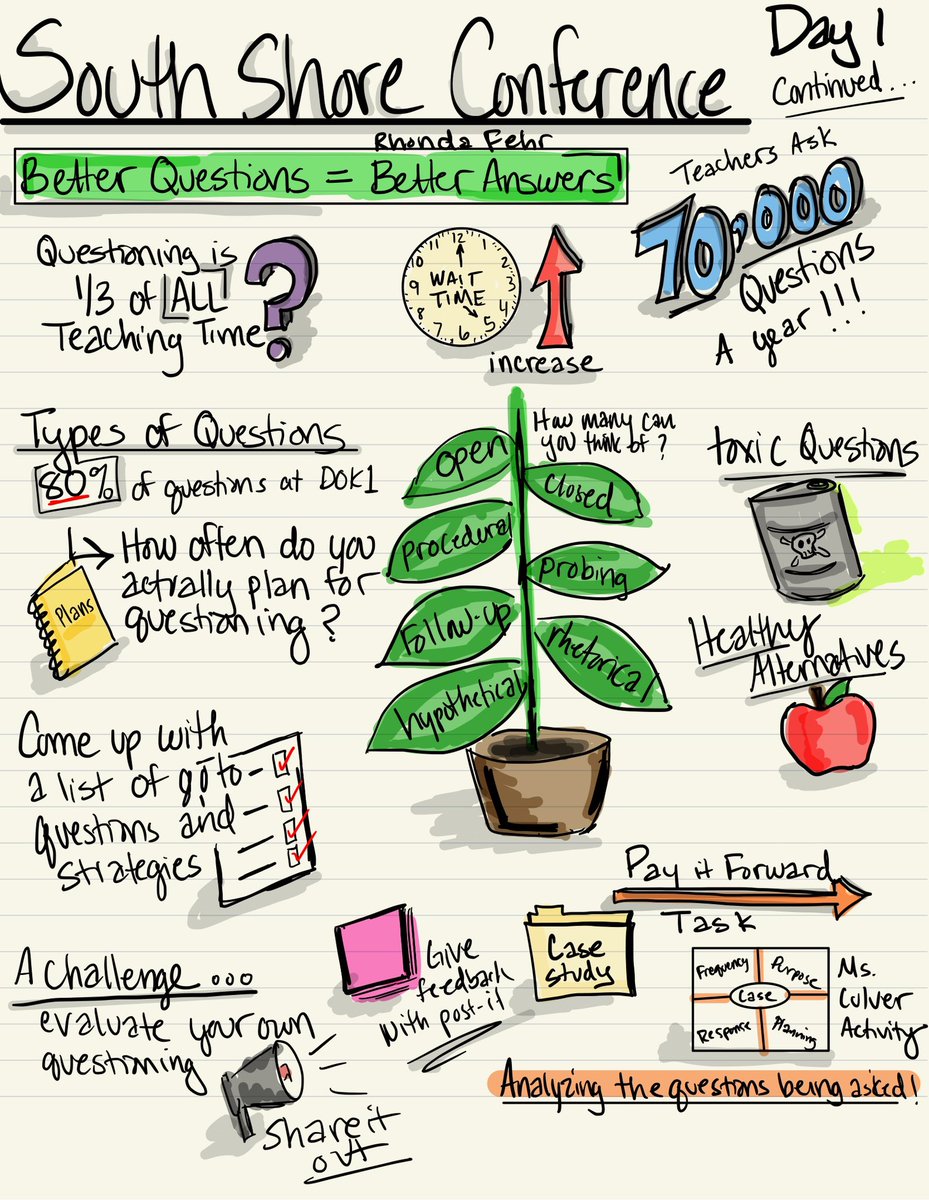 South Shore Conference
Day 1
Continued...
Rhonda Fehr
Better Questions = Better Answers!
Teachers Ask
70,000
Questions
A year!!!
Questioning is
1/3 of ALL
Teaching Time
?
12
1
2
3
4
5
6
7
8
9
10
11
WAIT
TIME
increase
Types of Questions
80% of questions at DOK1
How often do you
actually plan for
questioning?
Plans
How many can
you think of?
open
closed
procedural
probing
Follow-up
rhetorical
hypothetical
toxic Questions
Healthy
Alternatives
Come up with
a list of go to
questions and
strategies
Pay it Forward
Task
A Challenge...
evaluate your own
questioning
Share it
out
Give
feedback
with post-it
Case
study
Frequency
Purpose
Case
Response
Planning
Ms.
Culver
Activity
Analyzing the questions being asked!